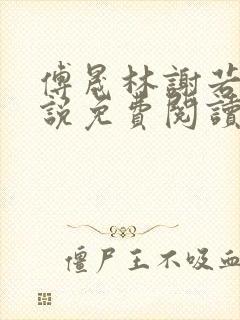 傅晟林謝若
說免費閱讀
僵尸王不吸血